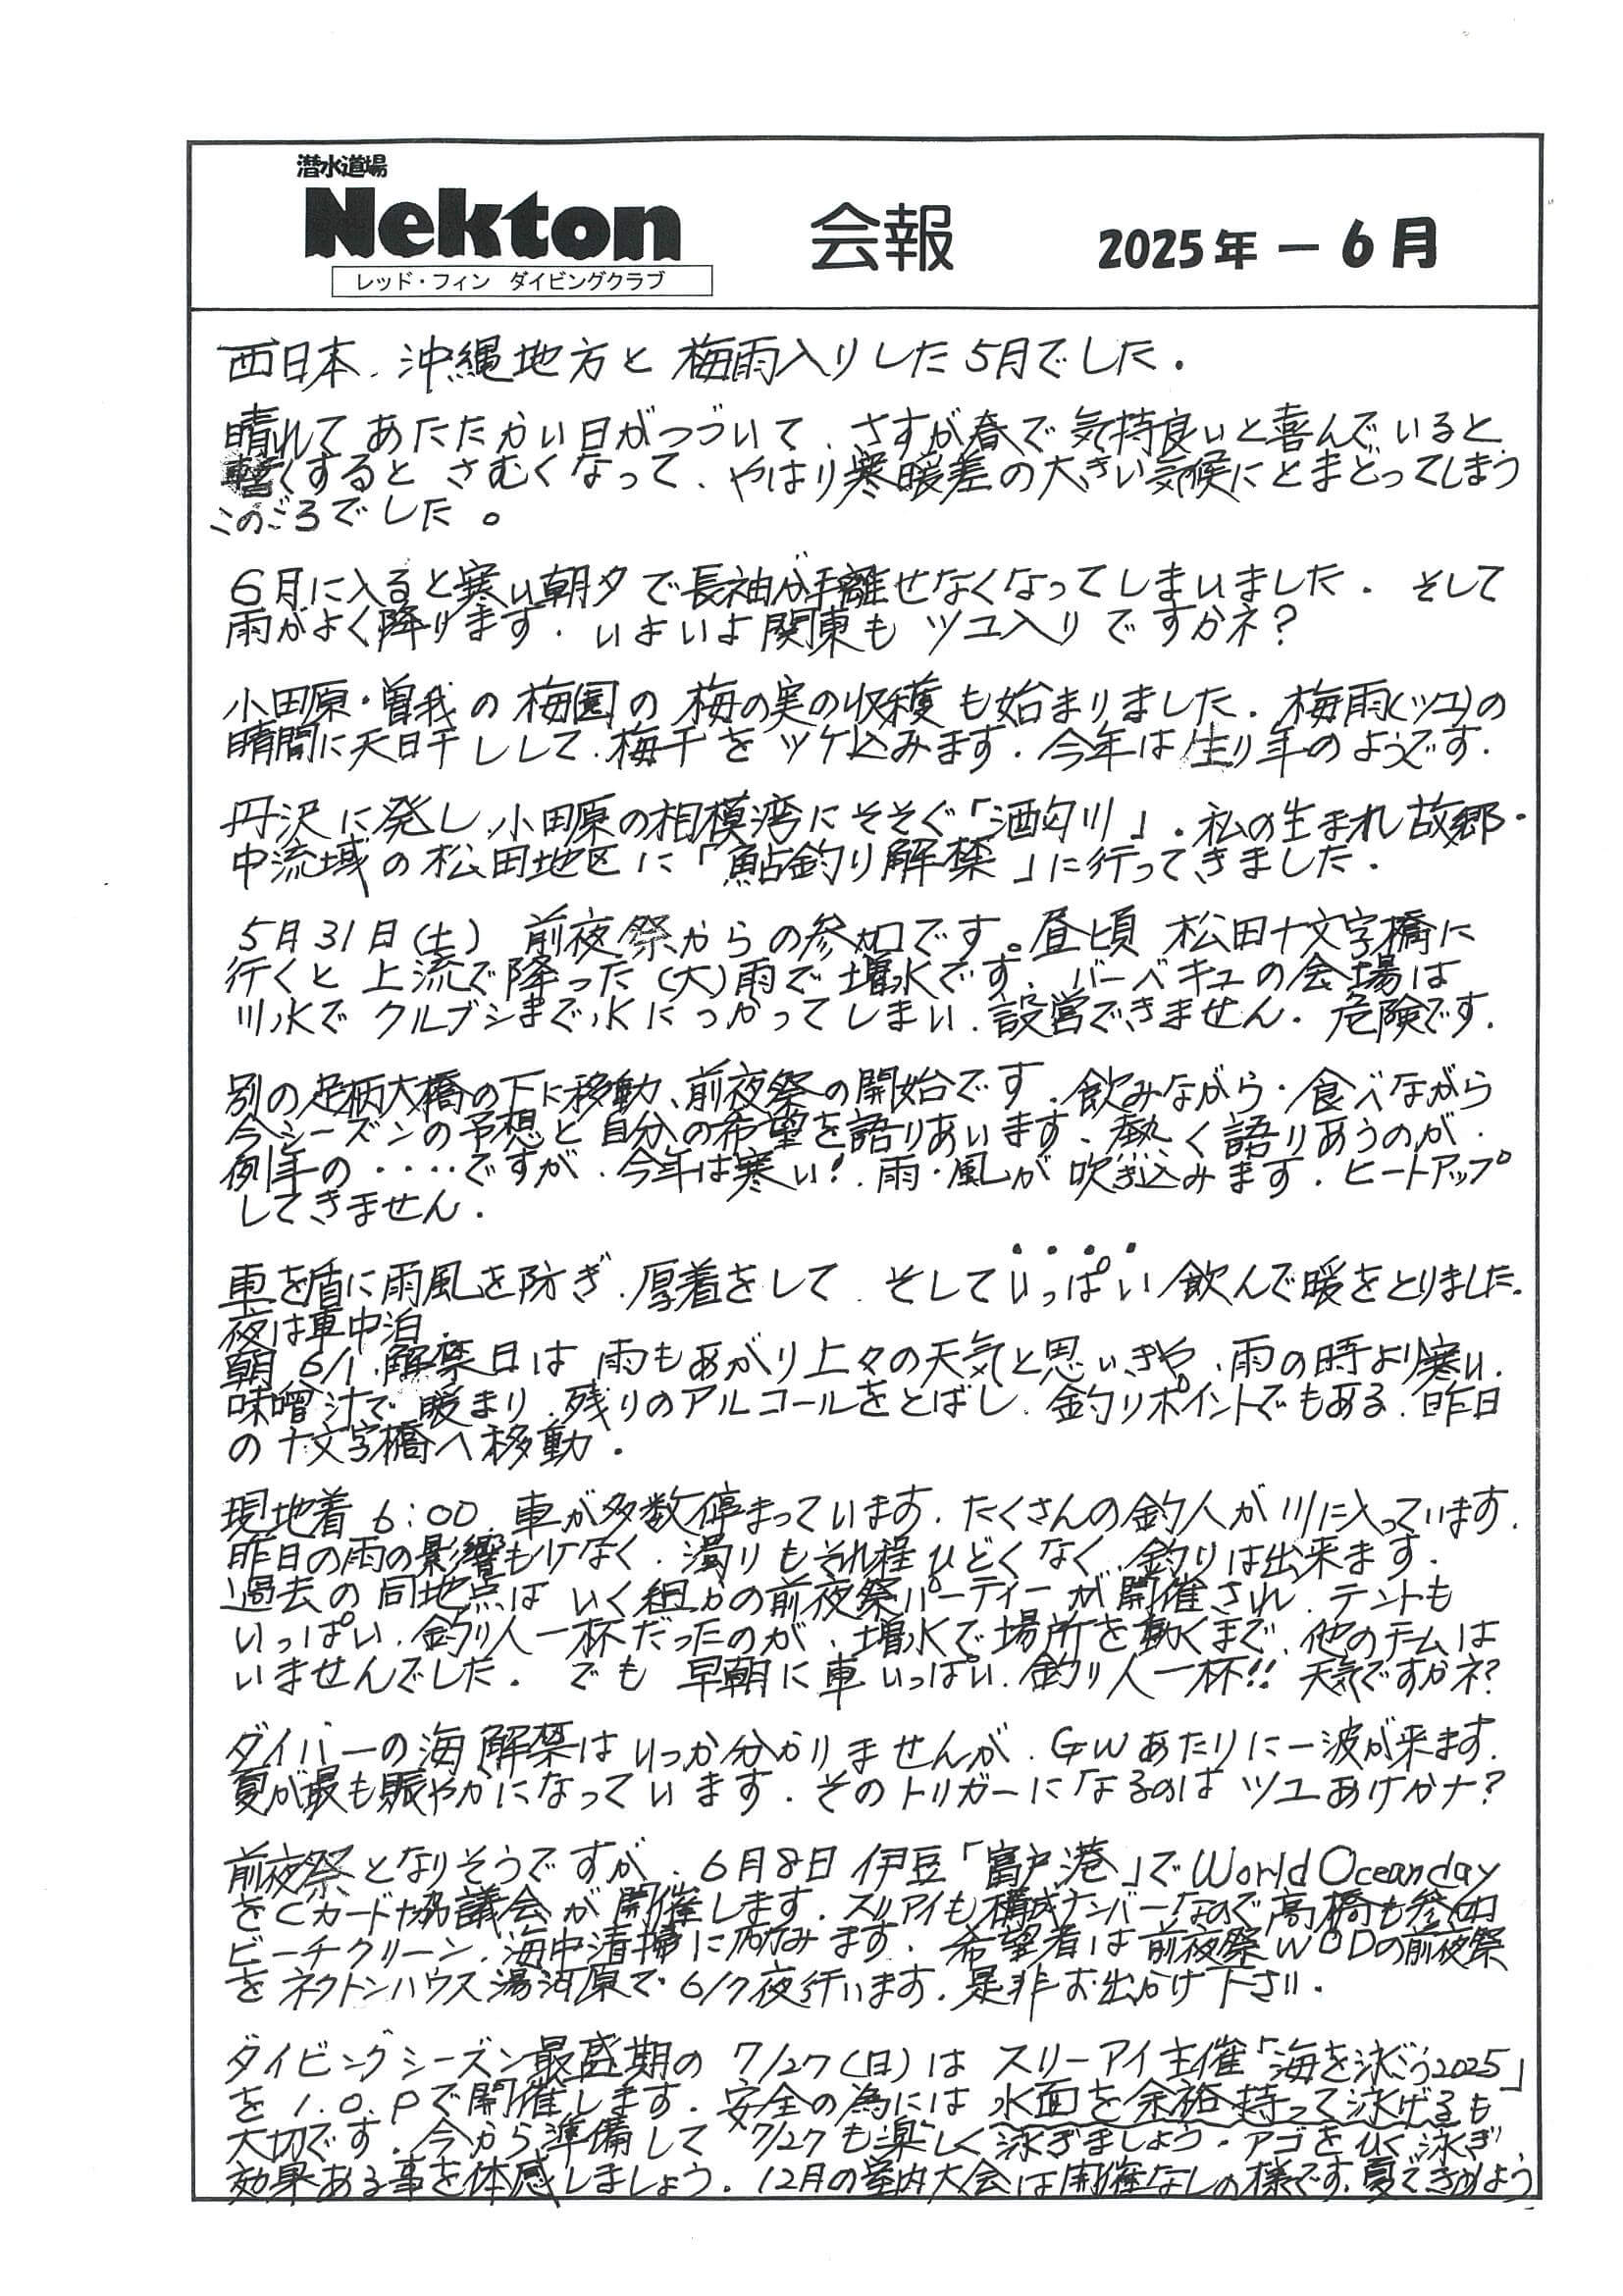 潜水道場
Nekton
レッド・フィン ダイビングクラブ
会報
2025年 ― 6月
西日本、沖縄地方と 梅雨入りした 5月でした.
晴れて あたたかい日がつづいて、さすが春で 気持良いと喜んでいると、
暫くすると さむくなって、やはり寒暖差の大きい気候にとまどってしまう
このごろでした。
6月に入ると寒い朝夕で長袖が手離せなくなってしまいました. そして
雨がよく降ります. いよいよ関東も ツユ入りですかネ?
小田原・曽我の梅園の 梅の実の収穫も始まりました. 梅雨(ツユ)の
晴間に天日干しして、梅干を ツケ込みます. 今年は生り年のようです.
丹沢に発し、小田原の相模湾にそそぐ「酒匂川」. 私の生まれ故郷・
中流域の松田地区に「鮎釣り解禁」に行ってきました.
5月31日(土) 前夜祭からの参加です。昼頃 松田十文字橋に
行くと 上流で降った(大)雨で増水です. バーベキュの会場は
川水で クルブシまで水につかってしまい、設営できません. 危険です.
別の足柄大橋の下に移動、前夜祭の開始です. 飲みながら・食べながら
今シーズンの予想と 自分の希望を語りあいます、熱く語りあうのが.
例年の ・・・・ですが、今年は寒い!. 雨・風が 吹き込みます. ヒートアップ
してきません.
車を盾に雨風を防ぎ、厚着をして そしていっぱい飲んで暖をとりました.
夜は車中泊.
朝 6/1、解禁日は 雨もあがり上々の天気と思いきや、雨の時より寒い.
味噌汁で 暖まり、残りのアルコールをとばし、釣りポイントでもある、昨日
の十文字橋へ移動.
現地着 6:00、車が多数停まっています. たくさんの釣人が川に入っています.
昨日の雨の影響も少なく、濁りもそれ程ひどくなく、釣りは出来ます.
過去の同地点は いく組かの前夜祭パーティーが開催され、テントも
いっぱい、釣り人一杯だったのが、増水で場所を動くまで、他のチームは
いませんでした. でも 早朝に車いっぱい、釣り人一杯!! 天気ですかネ?
ダイバーの海解禁はいつか分かりませんが、GWあたりに一波が来ます.
夏が最も賑やかになっています. そのトリガーになるのは ツユあけかナ?
前夜祭となりそうですが、6月8日 伊豆「富戸港」でWorld Oceanday
をCカード協議会が開催します. スリーアイも構成ナンバーなので高橋も参加
ビーチクリーン、海中清掃に励みます. 希望者は前夜祭WODの前夜祭
を ネクトンハウス湯河原で 6/7夜行います. 是非お出かけ下さい.
ダイビングシーズン最盛期の 7/27(日)は スリーアイ主催「海を泳ごう2025」
を I.O.Pで開催します. 安全の為には 水面を余裕持って泳げるも
大切です. 今から準備して 7/27も楽しく泳ぎましょう. アゴをひく泳ぎ
効果ある事を体感しましょう. 12月の室内大会は開催なしの様です、夏できめよう